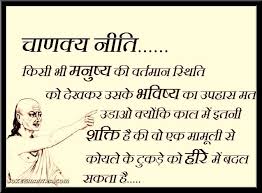 चाणक्य नीति......
किसी भी मनुष्य की वर्तमान स्थिति
को देखकर उसके भविष्य का उपहास मत
उडाओ क्योंकि काल में इतनी
शक्ति है की वो एक मामूली से
कोयले के टुकड़े को हीरे में बदल
सकता है.....